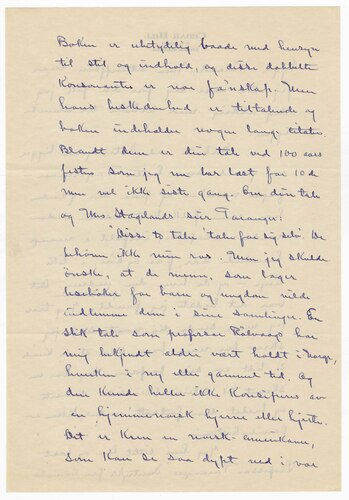 Boken er ubetydelig baade med hensyn
til stil og indhold, og disse dobbelte
Konsonanter er noe fanskap. Men
hans beskedenhed er tiltalende og
boken indeholder nogen lange citater.
Blandt dem er din tale ved 100 aars
festen som jeg nu har læst for 10de
men vel ikke siste gang. Om din tale
og Mrs. Stageland's sier Taranger:
"Disse to taler 'taler for sig selv'. De
behøver ikke min ros. Men jeg skulde
ønske, at de menn, som lager
lesebøker for barn og ungdom vilde
indlemme dem i sine samlinger. En
slik tale som professor Rølvaags har
mig bekjendt aldri vært holdt i Norge,
hverken i ny eller gammel tid. Og
den kunde heller ikke konsiperes av
en hjemmenorsk hjerne eller hjerte.
Det er kun en norsk-amerikaner,
som kan se saa dypt ned i vor